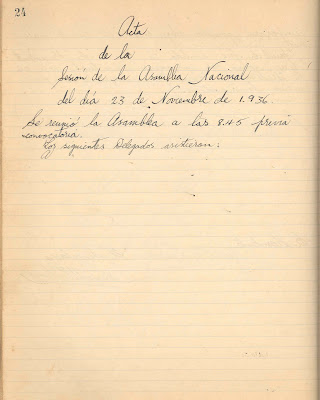 24
Acta
de la
Sesión de la Asamblea Nacional
del día 23 de Noviembre de 1.936.
Se reunió la Asamblea a las 8.45 previa
convocatoria.
Los siguientes Delegados asistieron: